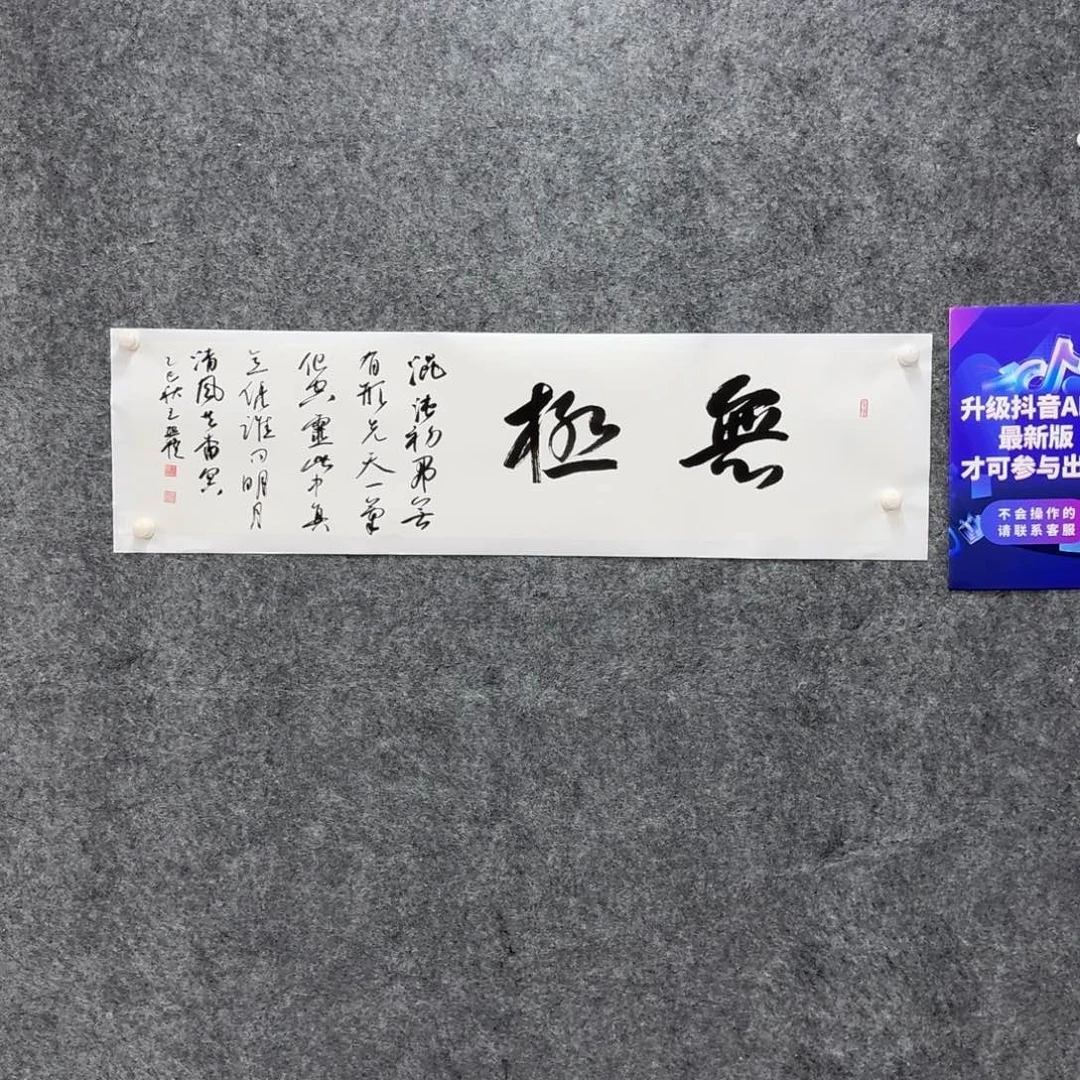 無極
混沌初無
有形先天一氣
但空靈此中真
意凭誰問明月
清風共杳冥
乙巳秋之
升级抖音AP
最新版
才可参与出
不会操作的
请联系客服